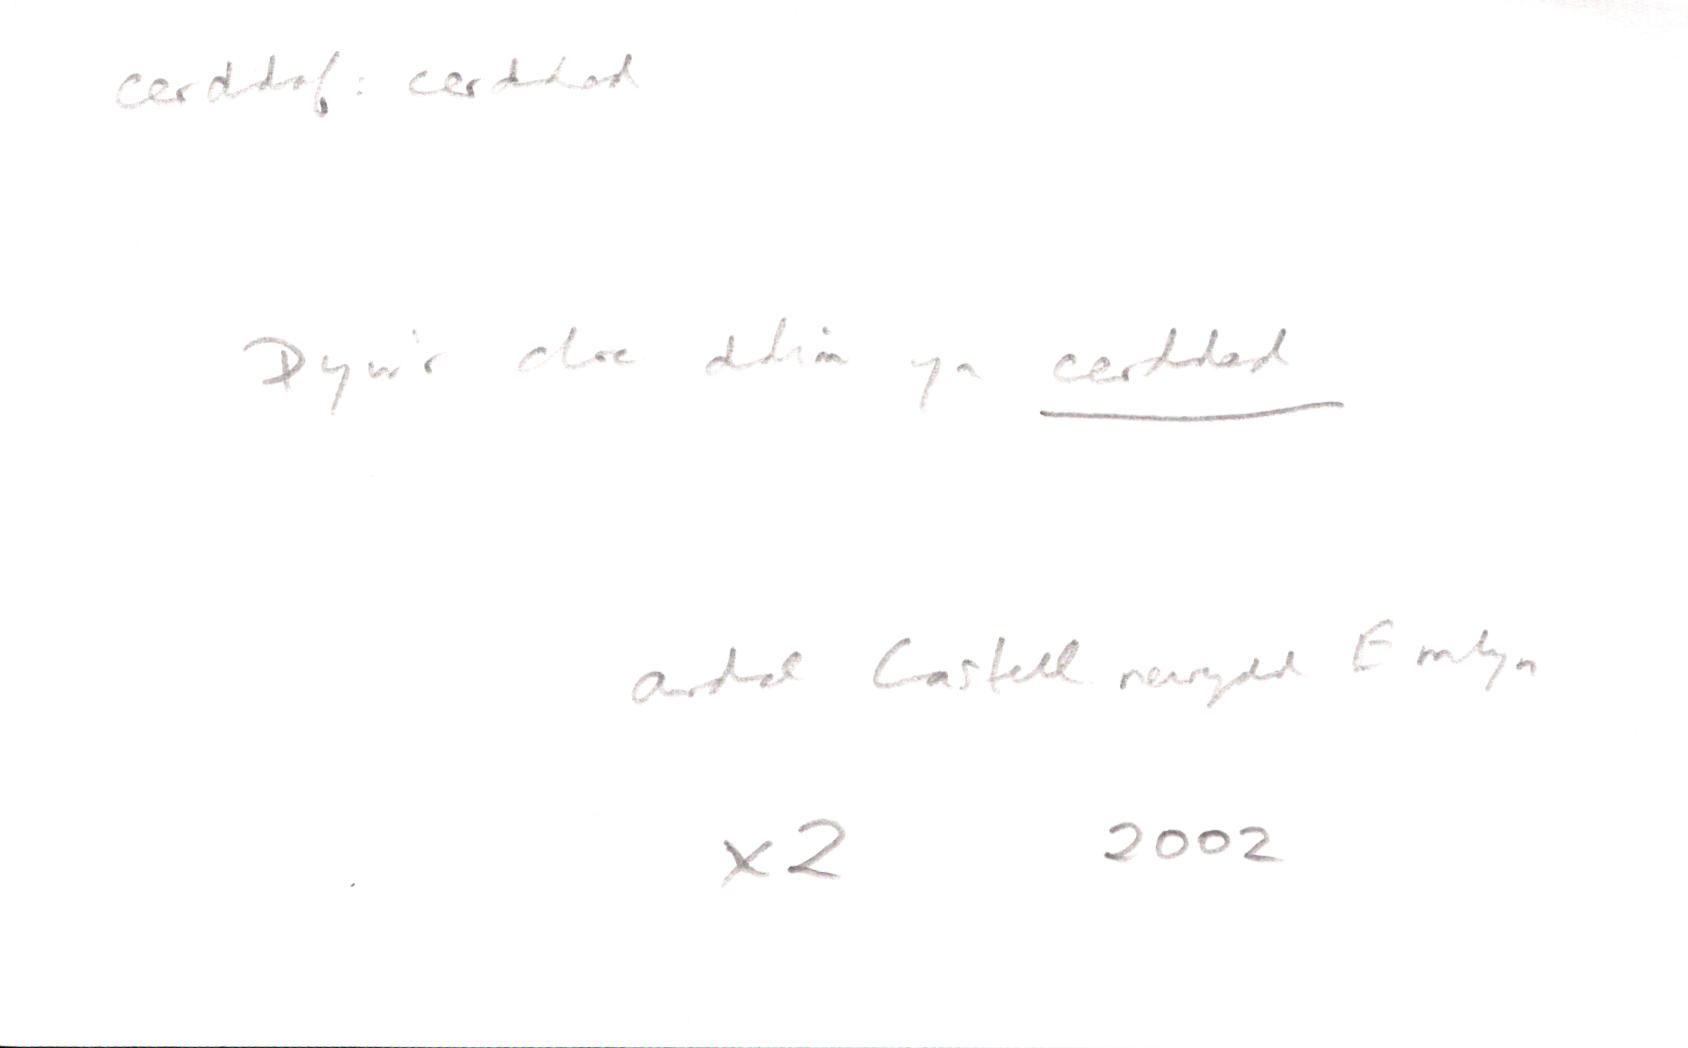 cerddaf: cerdded
Dyw'r cloc ddim yn cerdded
ardal Castell newydd Emlyn
x2 2002